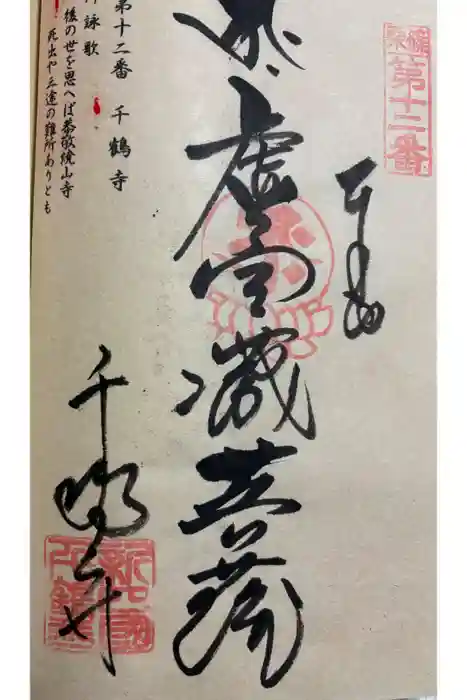 第十二番
奉拝
虚空蔵菩薩
千鶴寺
第十二番 千鶴寺
詠歌
後の世を思へば恭敬焼山寺
死出や三途の難所ありとも